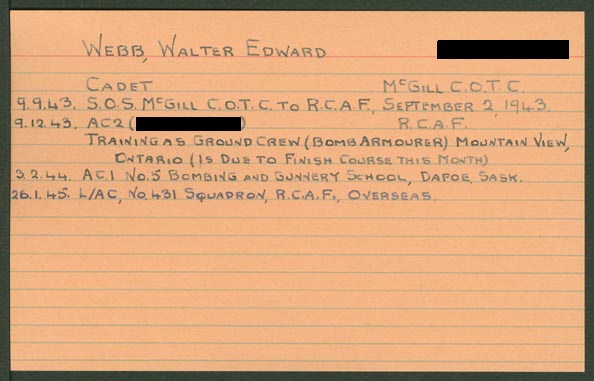 WEBB, WALTER EDWARD
CADET McGILL C.O.T.C.
9.9.43. S.O.S. McGILL C.O.T.C. TO R.C.A.F., SEPTEMBER 2, 1943.
9.12.43. AC2 ( ) R.C.A.F.
TRAINING AS GROUND CREW (BOMB ARMOURER) MOUNTAIN VIEW,
ONTARIO (IS DUE TO FINISH COURSE THIS MONTH)
3.2.44. AC.1 NO.5 BOMBING AND GUNNERY SCHOOL, DAFOE, SASK.
26.1.45. L/AC, NO. 431 SQUADRON, R.C.A.F., OVERSEAS.